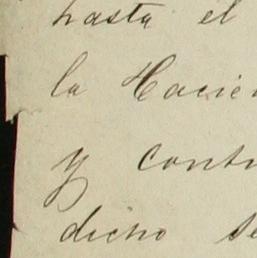 hasta el
la Hacien
y contr
dicho se